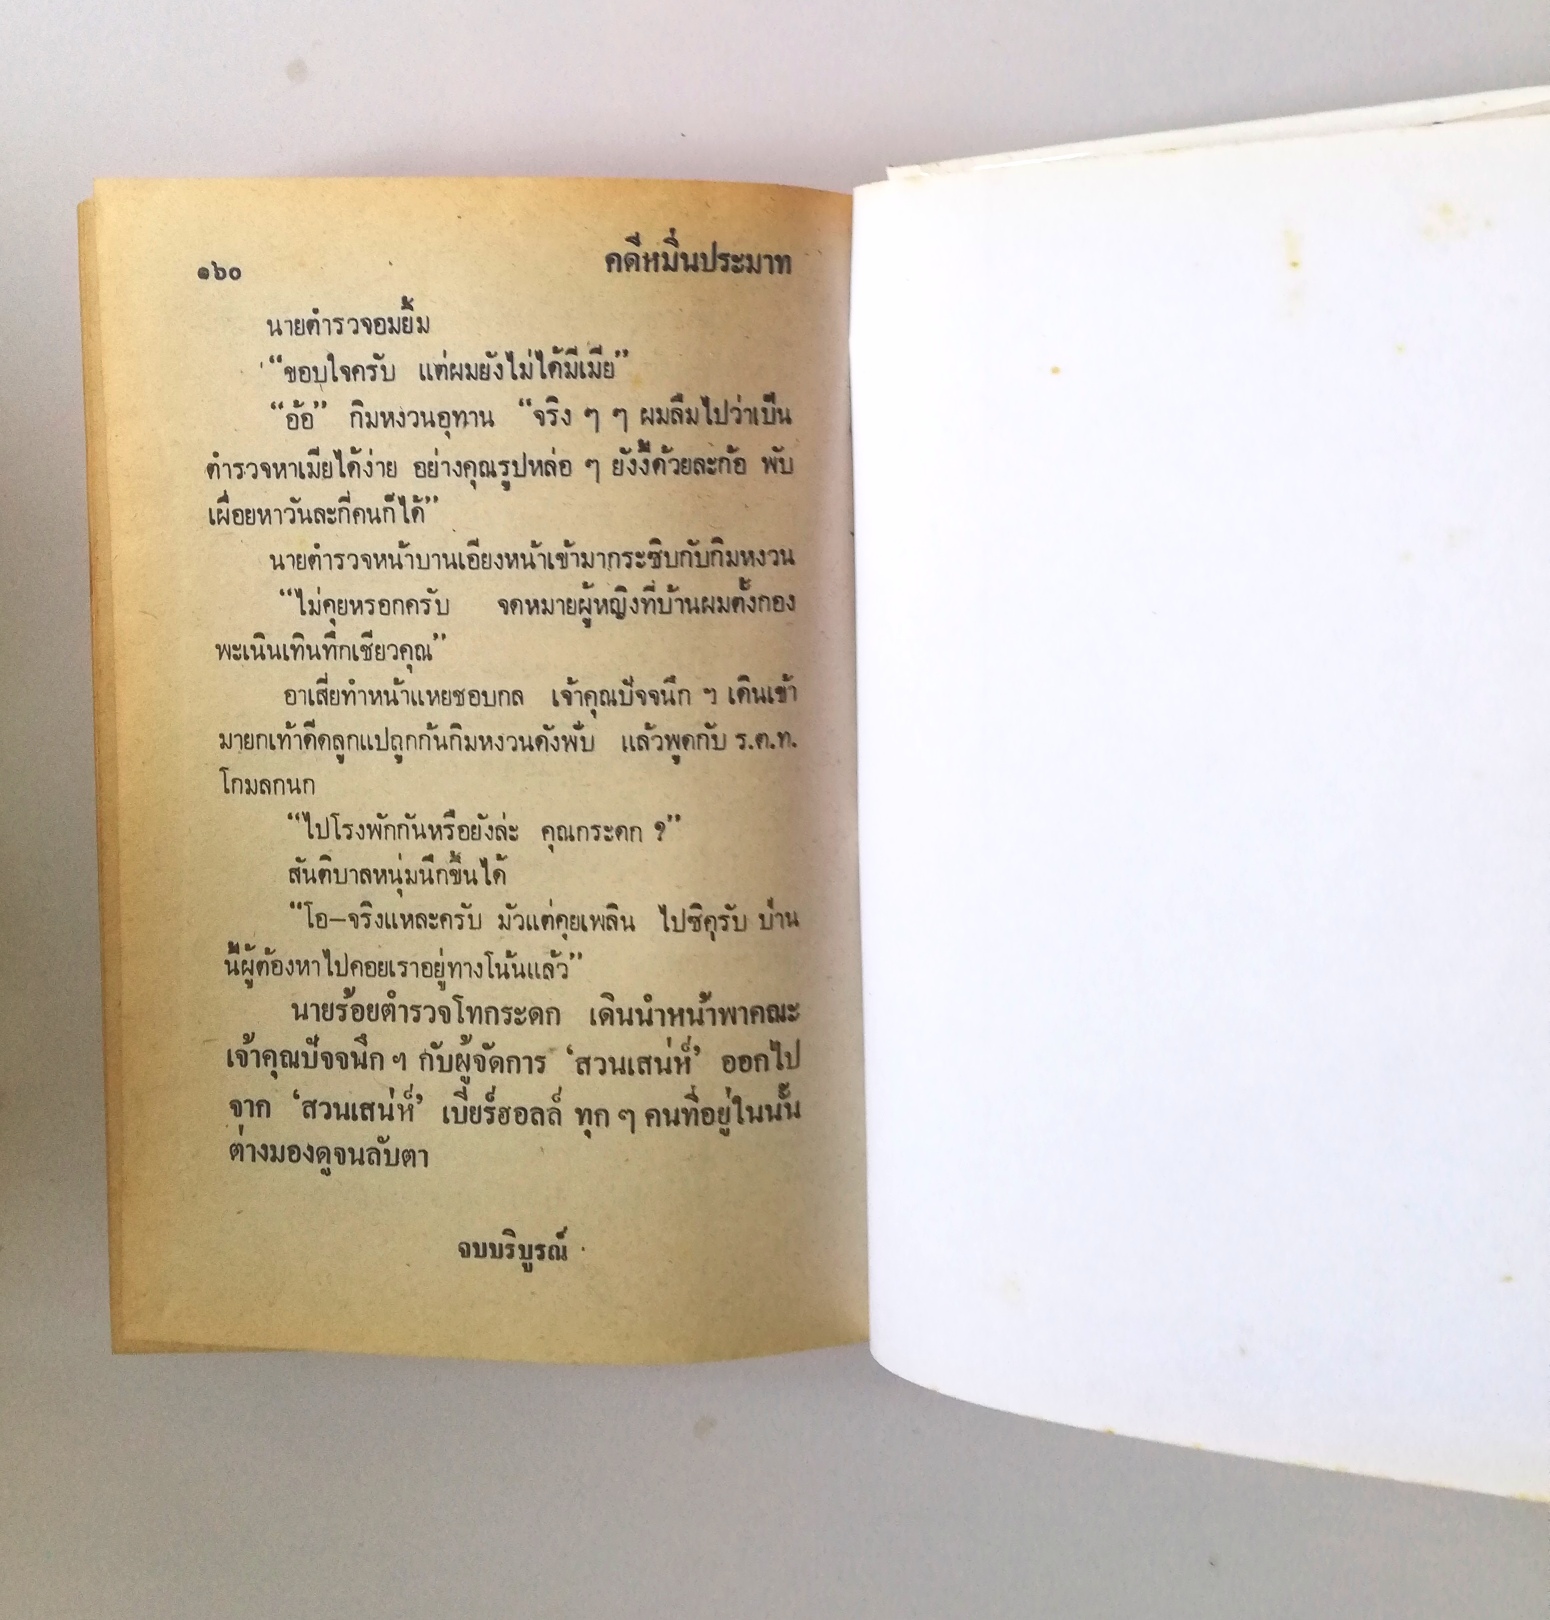 ๑๖๐ คดีหมิ่นประมาท
นายตำรวจอมยิ้ม
“ขอบใจครับ แต่ผมยังไม่ได้มีเมีย”
“อ้อ” กิมหงวนอุทาน “จริง ๆ ๆ ผมลืมไปว่าเป็น
ตำรวจหาเมียได้ง่าย อย่างคุณรูปหล่อ ๆ ยังงี้ด้วยละก้อ พับ
เผื่อยหาวันละกี่คนก็ได้”
นายตำรวจหน้าบานเอียงหน้าเข้ามากระซิบกับกิมหงวน
“ไม่คุยหรอกครับ จดหมายผู้หญิงที่บ้านผมตั้งกอง
พะเนินเทินทึกเชียวคุณ”
อาเสี่ยทำหน้าแหยชอบกล เจ้าคุณปัจจนึก ฯ เดินเข้า
มายกเท้าดีดลูกแปถูกก้นกิมหงวนดังพั่บ แล้วพูดกับ ร.ต.ท.
โกมลกนก
“ไปโรงพักกันหรือยังล่ะ คุณกระดก ?”
สันติบาลหนุ่มนึกขึ้นได้
“โอ—จริงแหละครับ มัวแต่คุยเพลิน ไปซิครับ ป่าน
นี้ผู้ต้องหาไปคอยเราอยู่ทางโน้นแล้ว”
นายร้อยตำรวจโทกระดก เดินนำหน้าพาคณะ
เจ้าคุณปัจจนึก ฯ กับผู้จัดการ ‘สวนเสน่ห์’ ออกไป
จาก ‘สวนเสน่ห์’ เบียร์ฮอลล์ ทุก ๆ คนที่อยู่ในนั้น
ต่างมองดูจนลับตา
จบบริบูรณ์